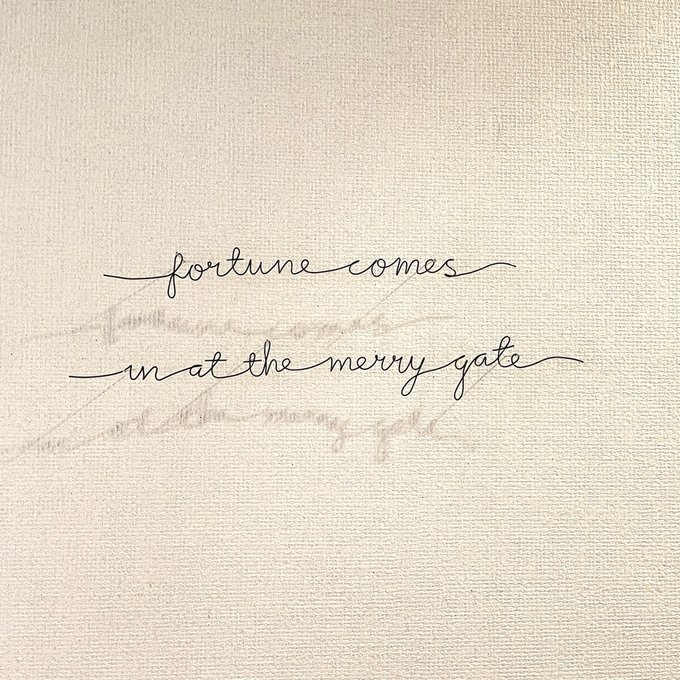 fortune comes
in at the merry gate